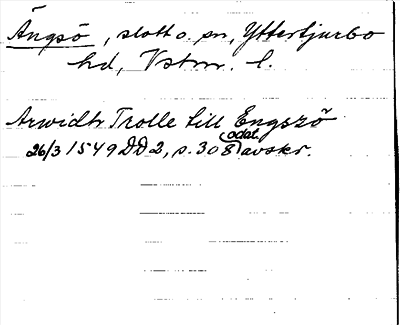 Ängsö, slott o. sn, Yttertjurbo
hd, Vstm. l.
Arwidh Trolle till Engszö
26/3 1549 DD2, s. 308 (odat. avskr.